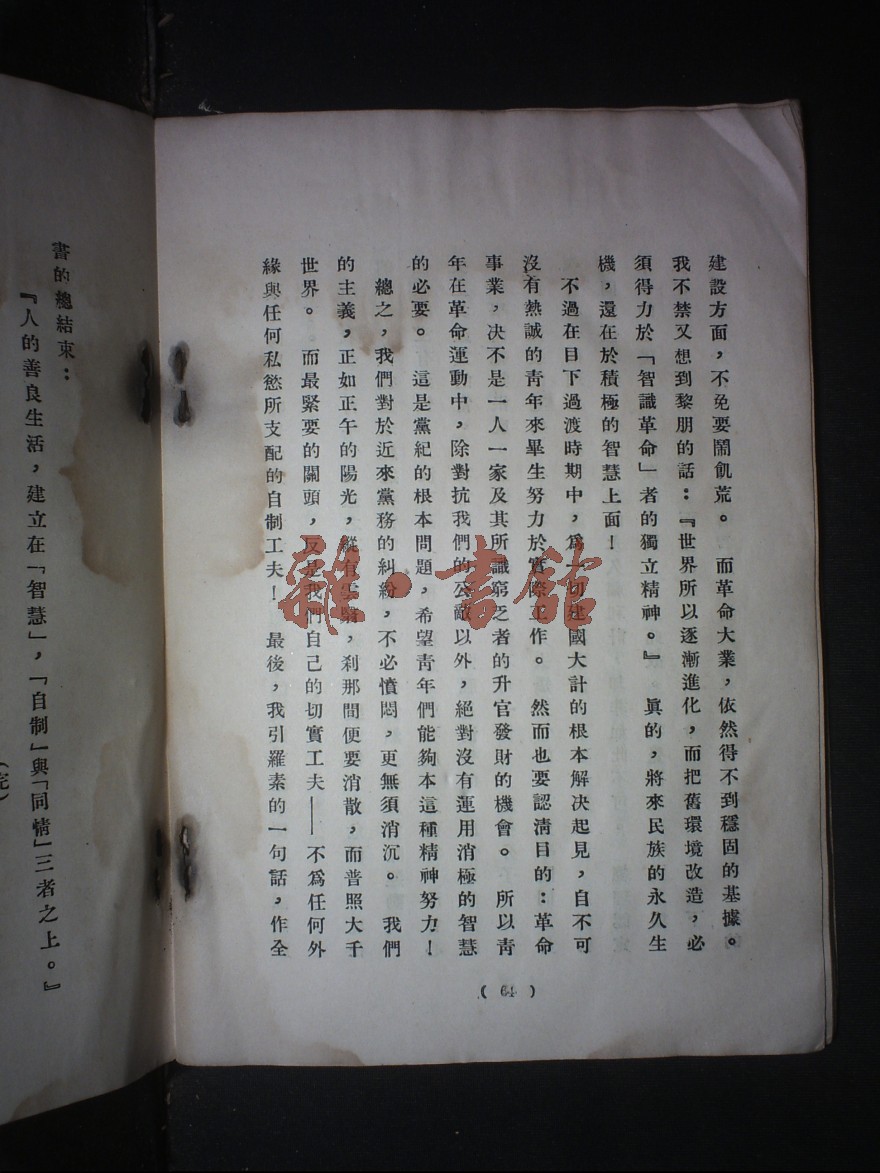 建設方面，不免要鬧飢荒。　而革命大業，依然得不到穩固的基據。
我不禁又想到黎朋的話：『世界所以逐漸進化，而把舊環境改造，必
須得力於「智識革命」者的獨立精神。』　眞的，將來民族的永久生
機，還在於積極的智慧上面！
不過在目下過渡時期中，爲一切建國大計的根本解決起見，自不可
沒有熱誠的靑年來畢生努力於實際工作。　然而也要認淸目的：革命
事業，决不是一人一家及其所識窮乏者的升官發財的機會。　所以靑
年在革命運動中，除對抗我們的公敵以外，絕對沒有運用消極的智慧
的必要。　這是黨紀的根本問題，希望靑年們能夠本這種精神努力！
總之，我們對於近來黨務的糾紛，不必憤悶，更無須消沉。　我們
的主義，正如正午的陽光，縱有雲翳，刹那間便要消散，而普照大千
世界。　而最緊要的關頭，反是我們自己的切實工夫——不爲任何外
緣與任何私慾所支配的自制工夫！　最後，我引羅素的一句話，作全
（64）
書的總結束：
『人的善良生活，建立在「智慧」，「自制」與「同情」三者之上。』
（完）
雜·書館